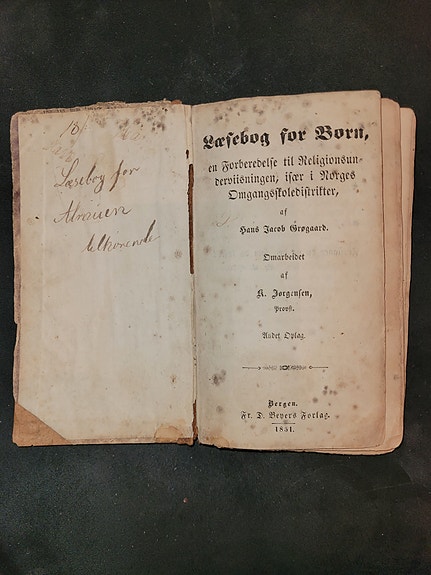 Læsebog for
tilhørende
Læsebog for Børn,
en Forberedelse til Religionsun-
derviisningen, især i Norges
Omgangsskoledistrikter,
af
Hans Jacob Grøgaard.
Omarbeidet
af
K. Jørgensen,
Provst.
Andet Oplag.
Bergen.
Fr. D. Beyers Forlag.
1851.